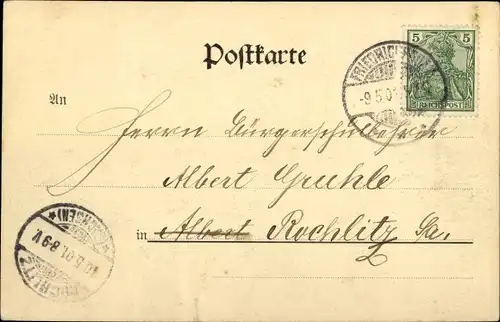 Postkarte
5 5
REICHSPOST
-9.5.01
An
Herrn Bürgerschullehrer
Albert Gruhle
in Albert Rochlitz Sa.
ROCHLITZ
10.5.01. 8-9V.
(SACHSEN)